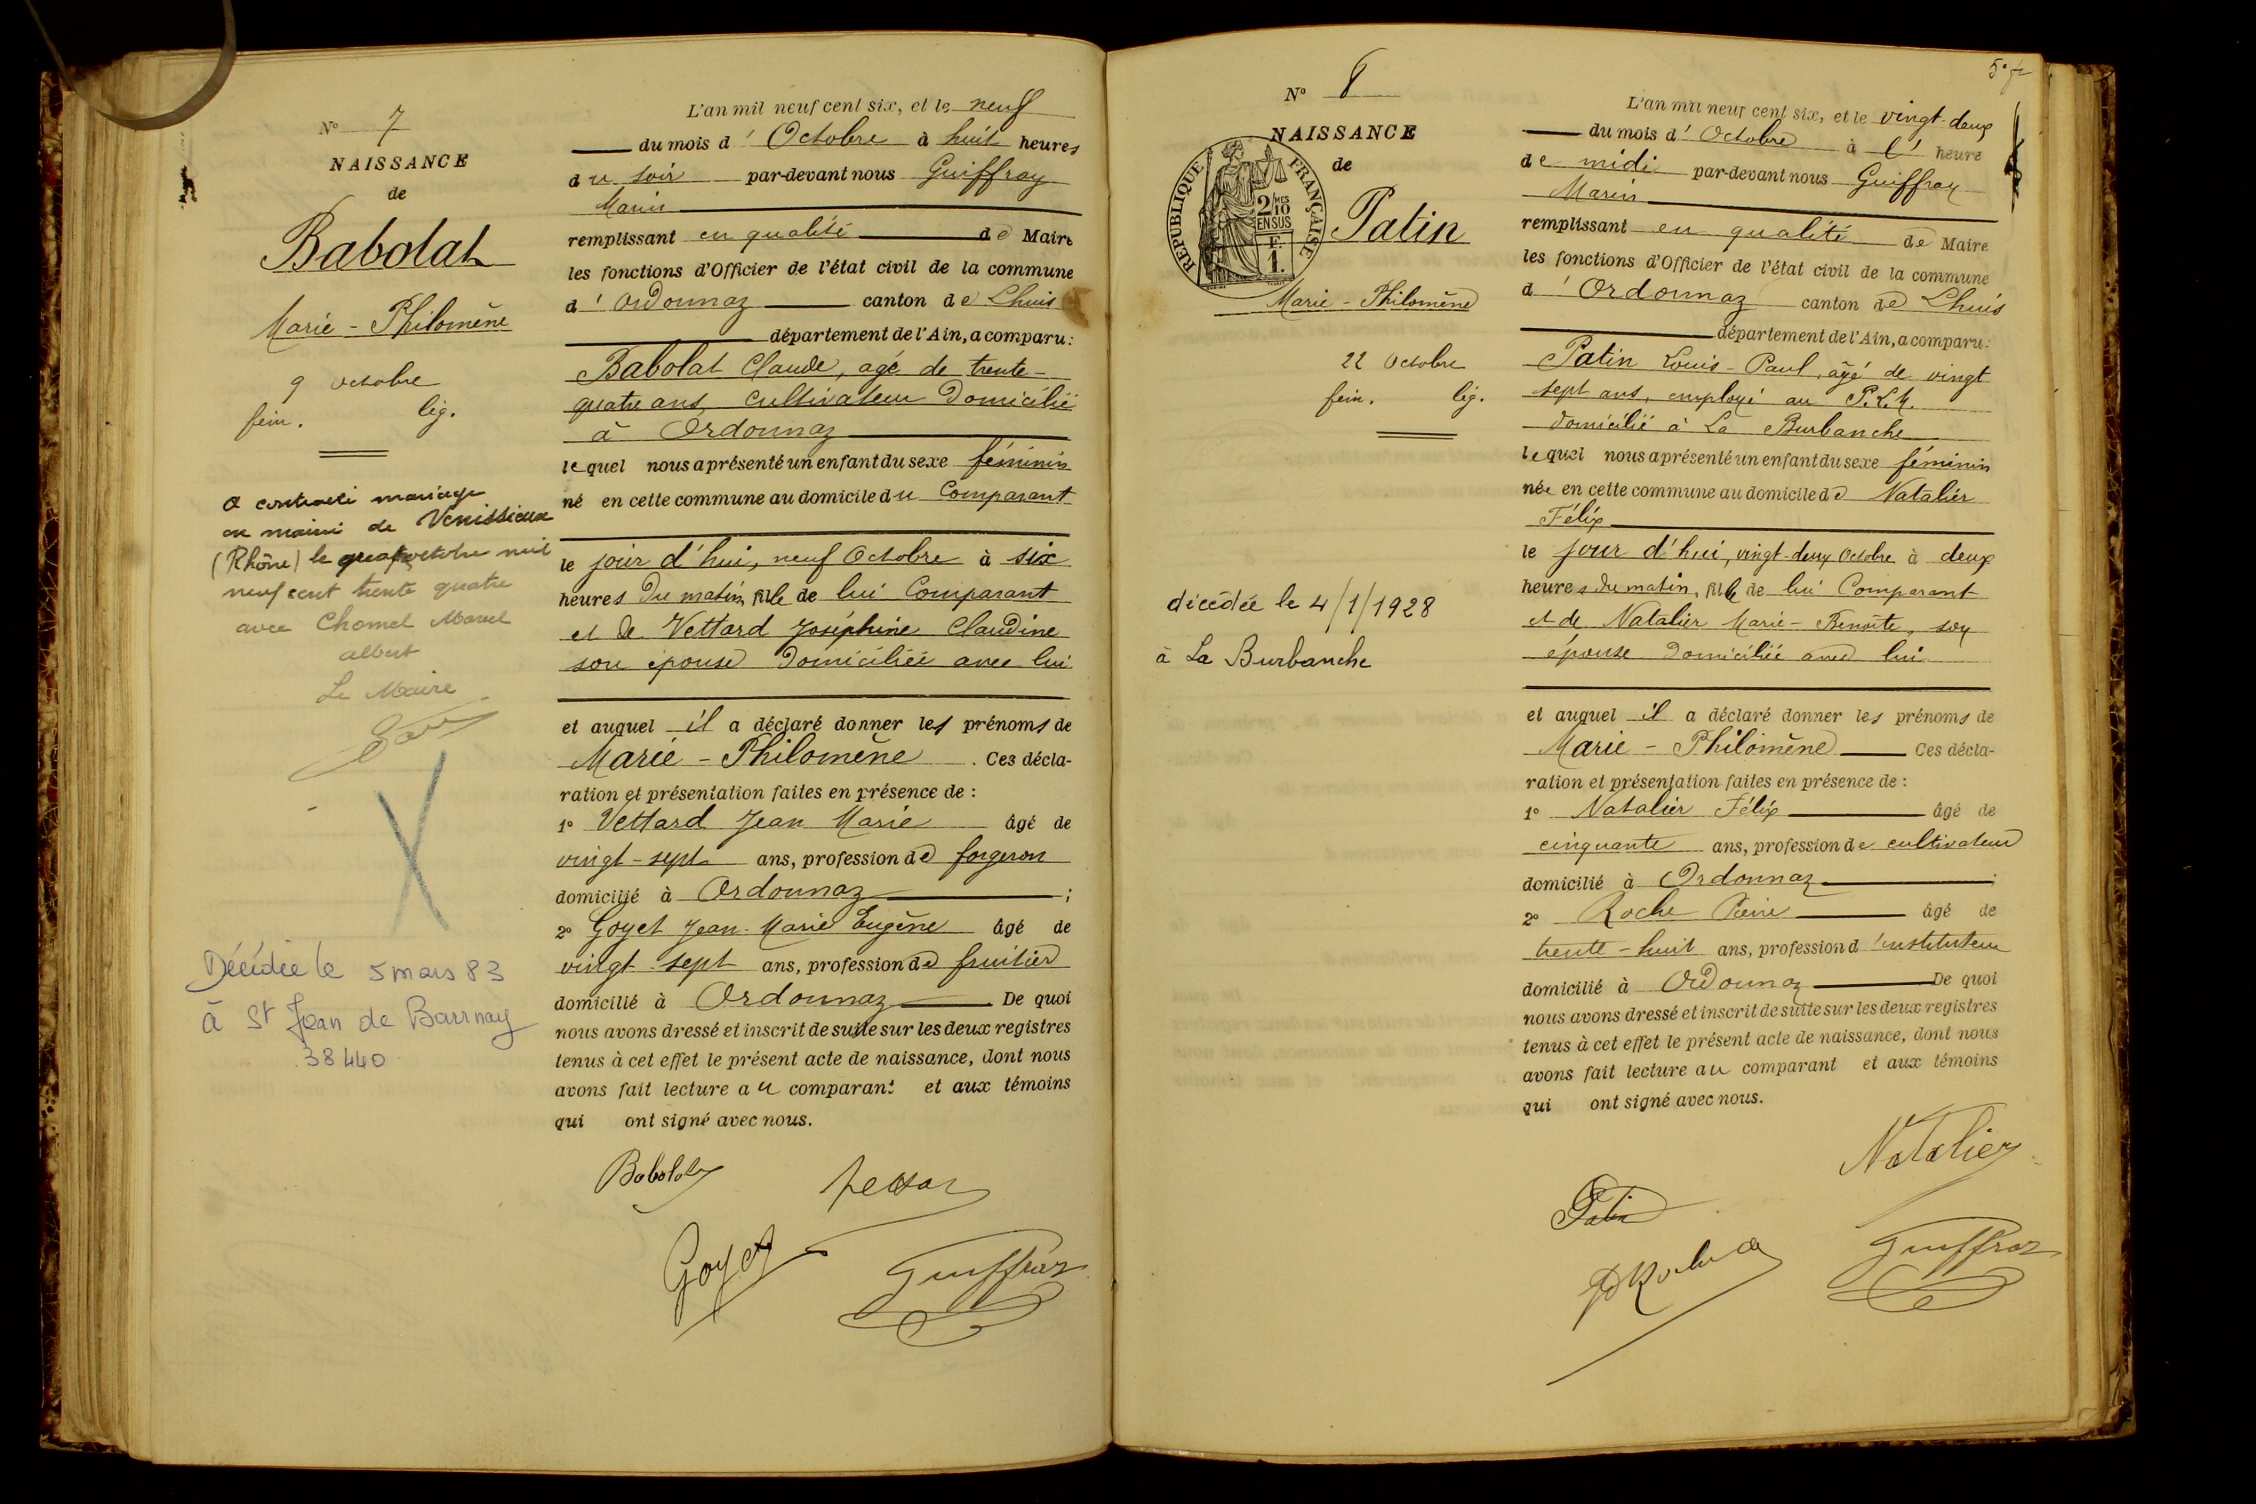 N° 7
NAISSANCE
de
Babolat
Marie - Philomène
9 octobre
fém. lég.
a contracté mariage
en mairie de Venissieux
(Rhône) le octobre mil
neuf cent trente quatre
avec Chomel Marcel
albert
Le Maire
Décédée le 5 mars 83
à St Jean de Bournay
38440
L'an mil neuf cent six, et le neuf
du mois d'Octobre à huit heures
du soir par-devant nous Guiffray
Marin
remplissant en qualité de Maire
les fonctions d'Officier de l'état civil de la commune
d'Ordonnaz canton de Lhuis
département de l'Ain, a comparu:
Babolat Claude, agé de trente-
quatre ans, cultivateur domicilié
à Ordonnaz
lequel nous a présenté un enfant du sexe féminin
né en cette commune au domicile du Comparant
le jour d'hui, neuf Octobre à six
heures du matin, fille de lui Comparant
et de Vettard Joséphine Claudine
son épouse domiciliée avec lui
et auquel il a déclaré donner les prénoms de
Marie - Philomène. Ces décla-
ration et présentation faites en présence de :
1° Vettard Jean Marie âgé de
vingt-sept ans, profession de forgeron
domicilié à Ordonnaz ;
2° Goyet Jean-Marie Eugène âgé de
vingt-sept ans, profession de fruitier
domicilié à Ordonnaz De quoi
nous avons dressé et inscrit de suite sur les deux registres
tenus à cet effet le présent acte de naissance, dont nous
avons fait lecture au comparant et aux témoins
qui ont signé avec nous.
Babolat
Goyet Guiffray
N° 8
NAISSANCE
de
RÉPUBLIQUE FRANÇAISE
2/10
EN SUS
F.
1.
Patin
Marie - Philomène
22 Octobre
fém. lég.
décédée le 4/1/1928
à La Burbanche
L'an mil neuf cent six, et le vingt-deux
du mois d'Octobre à l' heure
de midi par-devant nous Guiffray
Marin
remplissant en qualité de Maire
les fonctions d'Officier de l'état civil de la commune
d'Ordonnaz canton de Lhuis
département de l'Ain, a comparu:
Patin Louis-Paul, âgé de vingt
sept ans, employé au P.L.M.
domicilié à La Burbanche
lequel nous a présenté un enfant du sexe féminin
née en cette commune au domicile de Natalier
Félix
le jour d'hui, vingt-deux Octobre à deux
heures du matin, fille de lui Comparant
et de Natalier Marie-Benoite, son
épouse domiciliée avec lui
et auquel il a déclaré donner les prénoms de
Marie - Philomène Ces décla-
ration et présentation faites en présence de :
1° Natalier Félix âgé de
cinquante ans, profession de cultivateur
domicilié à Ordonnaz
2° Roche Pierre âgé de
trente-huit ans, profession d'instituteur
domicilié à Ordonnaz De quoi
nous avons dressé et inscrit de suite sur les deux registres
tenus à cet effet le présent acte de naissance, dont nous
avons fait lecture au comparant et aux témoins
qui ont signé avec nous.
Natalier
Patin
Guiffray